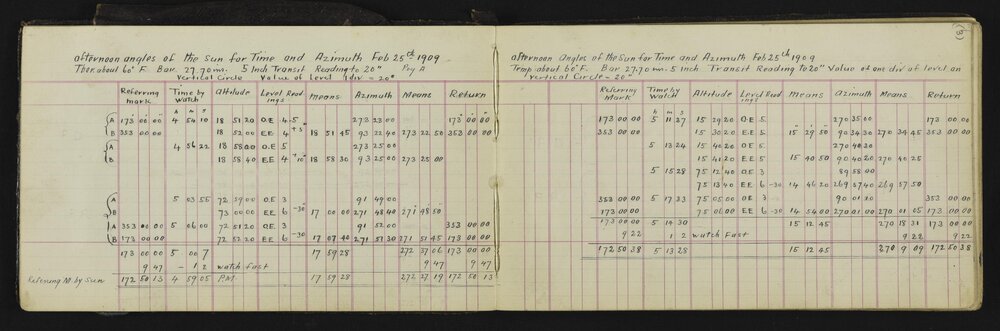 afternoon angles of the Sun for Time and Azimuth Feb 25th 1909
Ther. about 60° F. Bar. 27.70 in. 5 Inch Transit Reading to 20" Poy A
Vertical Circle Value of Level 1 div = 20"
Referring mark Time by watch altitude Level Readings Means Azimuth Means Return
h m s
A 173 00 00 4 54 10 18 51 20 O.E 4-5 273 23 00 173 00 00
B 353 00 00 18 52 00 E.E 4 +5" 18 51 45 93 22 40 273 22 50 353 00 00
A 4 56 22 18 58 20 O.E 5 273 25 00
B 18 58 40 E.E 4 +10" 18 58 30 93 25 00 273 25 00
A 5 03 55 72 59 00 O.E 3 91 49 00
B 73 00 00 E.E 6 -30" 17 00 00 271 48 40 271 48 50
A 353 00 00 5 06 00 72 51 20 O.E 3 91 52 00 353 00 00
B 173 00 00 72 52 20 E.E 6 -30" 17 07 40 271 51 30 271 51 45 173 00 00
173 00 00 5 00 7 17 59 28 272 37 06 173 00 00
9 47 - 1.2 watch fast 9 47 9 47
Refering M. by Sun 172 50 13 4 59 05 P.M 17 59 28 272 27 19 172 50 13
afternoon Angles of the Sun for Time and Azimuth Feb 25th 1909
about 60° F. Bar 27.70 in. 5 Inch Transit Reading to 20" Value of one div of level on
Vertical Circle = 20"
Referring Mark Time by Watch Altitude Level Readings Means Azimuth Means Return
h m s
173 00 00 5 11 27 15 29 20 O.E 5. 270 35 00 173 00 00
353 00 00 15 30 20 E.E 5. 15 29 50 90 34 30 270 34 45 353 00 00
5 13 24 15 40 20 O.E 5. 270 40 30
15 41 20 E.E 5 15 40 50 90 40 20 270 40 25
5 15 28 75 12 40 O.E 3 89 58 00
75 13 40 E.E 6 -30 14 46 20 269 57 40 269 57 50
353 00 00 5 17 33 75 05 00 O.E 3 90 01 20 353 00 00
173 00 00 75 06 00 E.E 6 -30 14 54 00 270 01 00 270 01 05 173 00 00
173 00 00 5 14 30 15 12 45 270 18 31 173 00 00
9 22 1 2 watch Fast 9 22 9 22
172 50 38 5 13 28 15 12 45 270 9 09 172 50 38